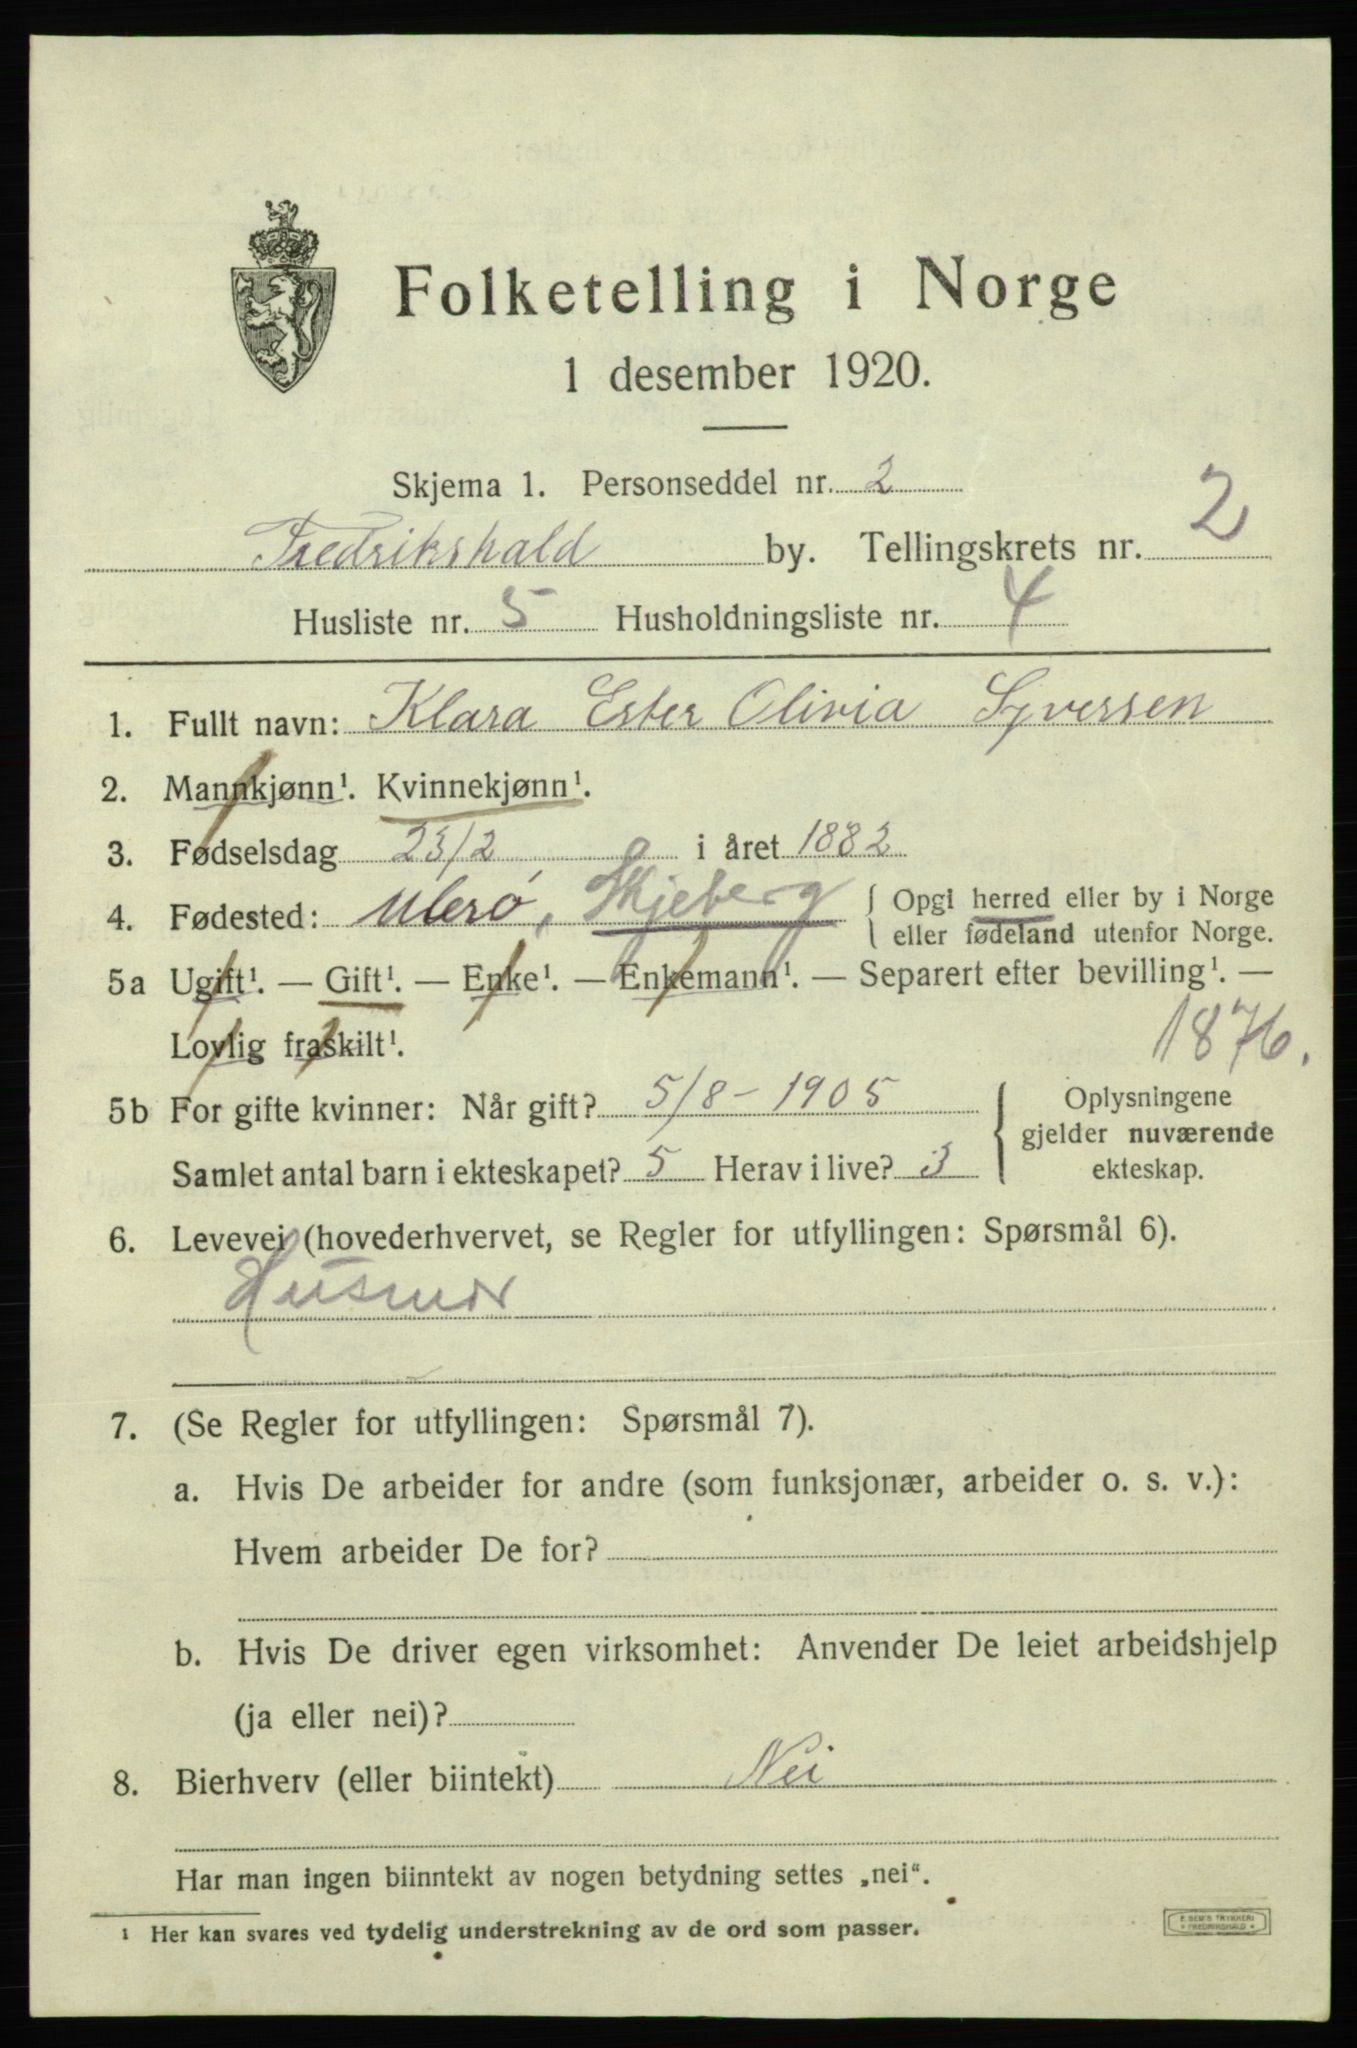 Folketelling i Norge
1 desember 1920.
Skjema 1. Personseddel nr. 2
Fredrikshald by. Tellingskrets nr. 2
Husliste nr. 5 Husholdningsliste nr. 4
1. Fullt navn: Klara Ester Olivia Syversen
2. Mannkjønn¹. Kvinnekjønn¹.
3. Fødselsdag 23/2 i året 1882
4. Fødested: Ulerø, Skjeberg { Opgi herred eller by i Norge
eller fødeland utenfor Norge.
5a Ugift¹. — Gift¹. — Enke¹. — Enkemann¹. — Separert efter bevilling¹. —
Lovlig fraskilt¹.
1876.
5b For gifte kvinner: Når gift? 5/8 - 1905
Samlet antal barn i ekteskapet? 5 Herav i live? 3
{ Oplysningene
gjelder nuværende
ekteskap.
6. Levevei (hovederhvervet, se Regler for utfyllingen: Spørsmål 6).
Husmor
7. (Se Regler for utfyllingen: Spørsmål 7).
a. Hvis De arbeider for andre (som funksjonær, arbeider o. s. v.):
Hvem arbeider De for?
b. Hvis De driver egen virksomhet: Anvender De leiet arbeidshjelp
(ja eller nei)?
8. Bierhverv (eller biintekt) Nei
Har man ingen biinntekt av nogen betydning settes „nei“.
¹ Her kan svares ved tydelig understrekning av de ord som passer.
E. SEM'S TRYKKERI
* FREDRIKSHALD *